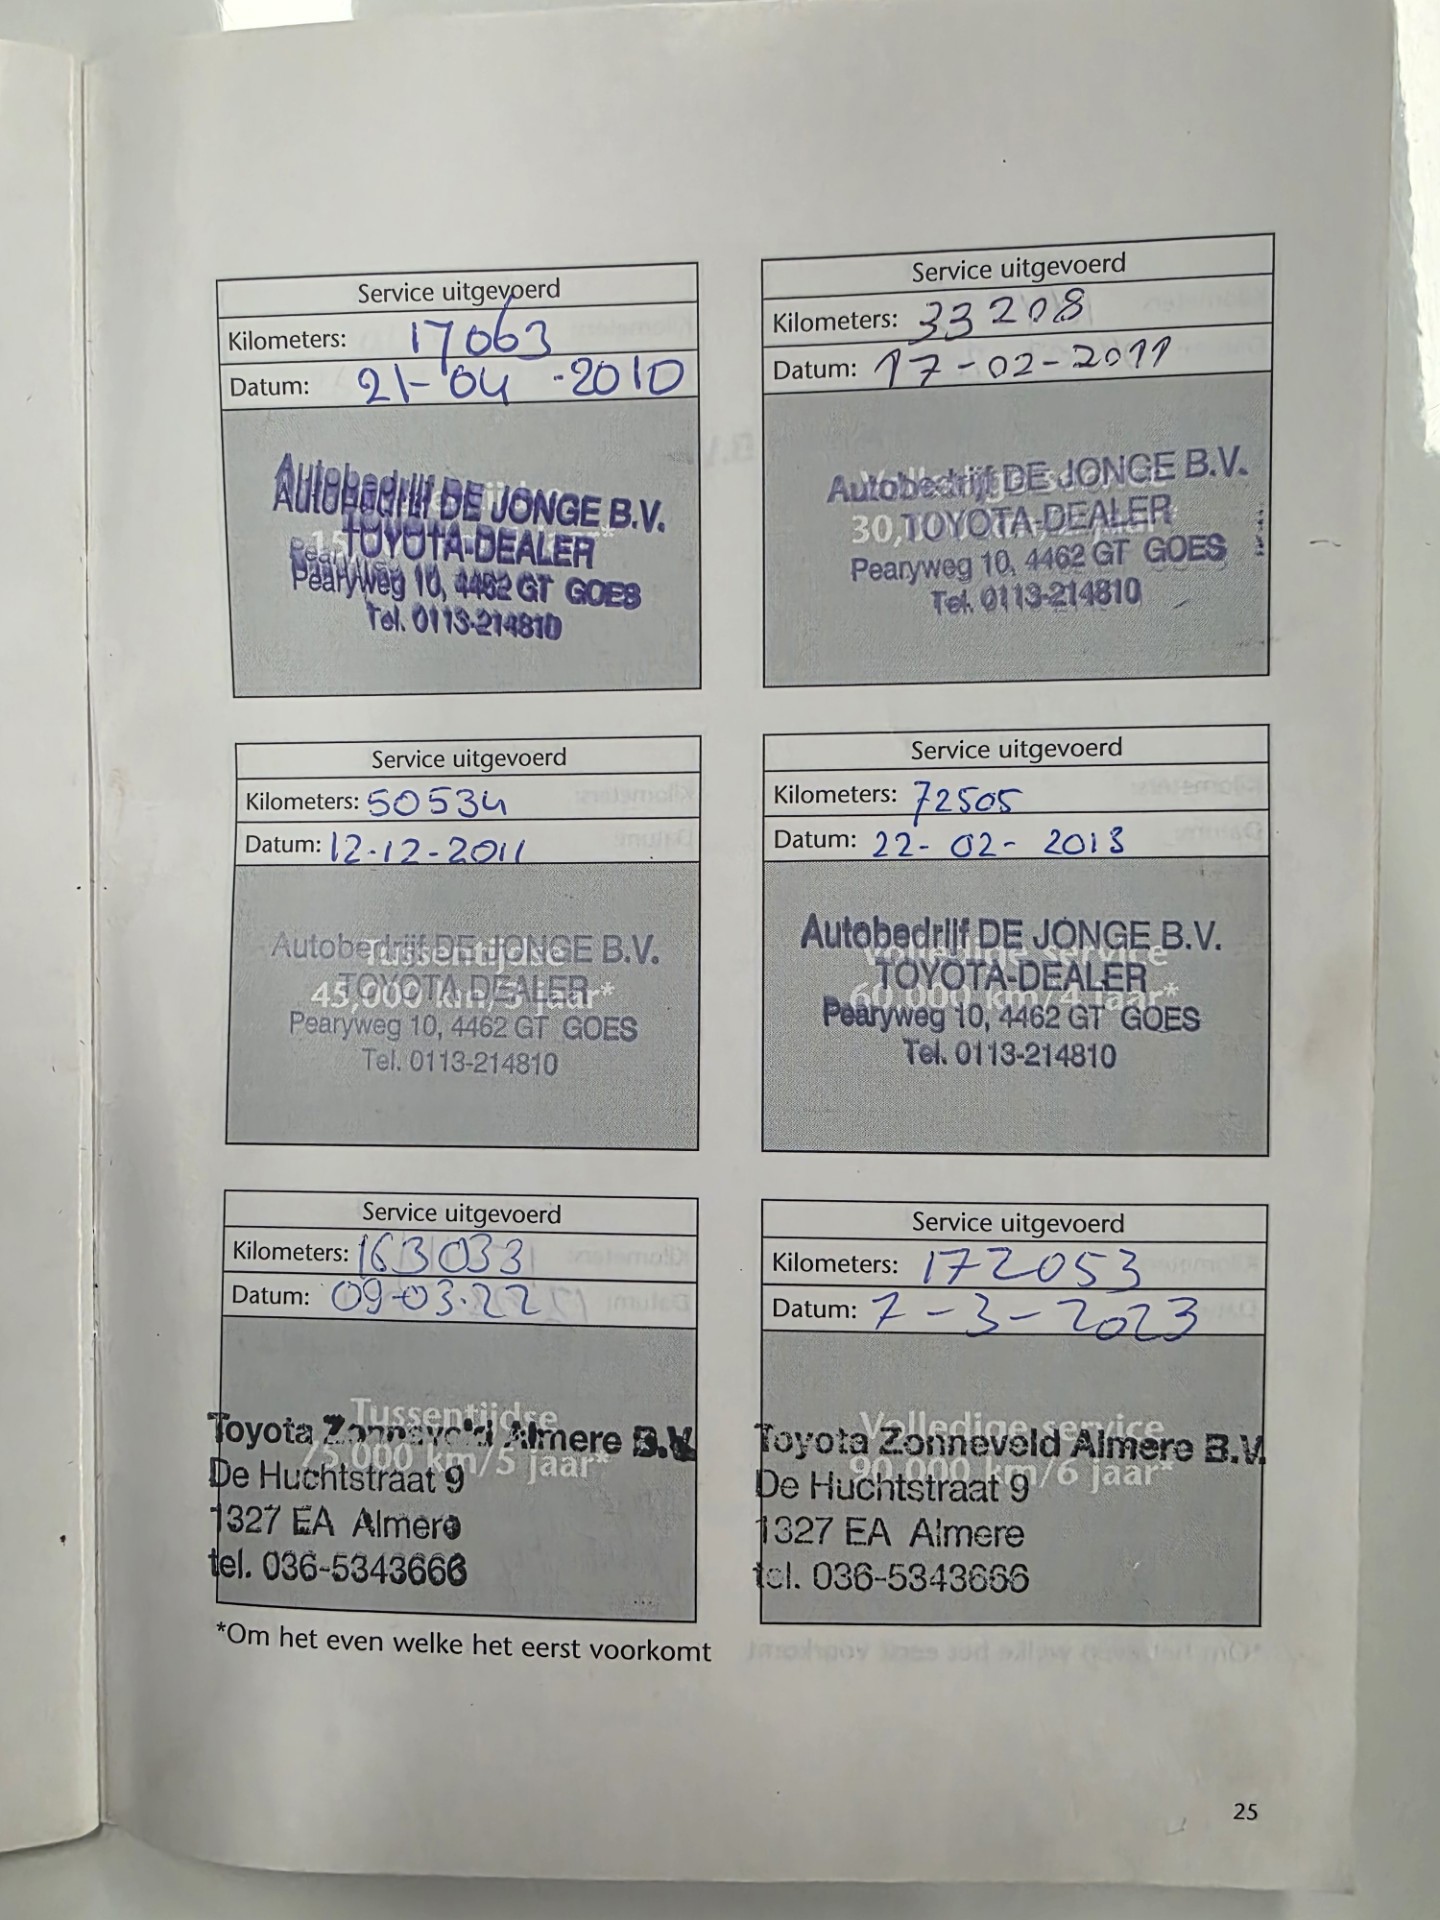 Service uitgevoerd
Kilometers: 17063
Datum: 21-04-2010
Autobedrijf DE JONGE B.V.
TOYOTA-DEALER
Pearyweg 10, 4462 GT GOES
Tel. 0113-214810
Service uitgevoerd
Kilometers: 33208
Datum: 17-02-2011
Autobedrijf DE JONGE B.V.
30, TOYOTA-DEALER
Pearyweg 10, 4462 GT GOES
Tel. 0113-214810
Service uitgevoerd
Kilometers: 50534
Datum: 12-12-2011
Tussentijdse
45,000 km/3 jaar*
Autobedrijf DE JONGE B.V.
TOYOTA-DEALER
Pearyweg 10, 4462 GT GOES
Tel. 0113-214810
Service uitgevoerd
Kilometers: 72505
Datum: 22-02-2013
Volledige service
60,000 km/4 jaar*
Autobedrijf DE JONGE B.V.
TOYOTA-DEALER
Pearyweg 10, 4462 GT GOES
Tel. 0113-214810
Service uitgevoerd
Kilometers: 163033
Datum: 09-03-22
Tussentijdse
75,000 km/5 jaar*
Toyota Zonneveld Almere B.V.
De Huchtstraat 9
1327 EA Almere
tel. 036-5343666
Service uitgevoerd
Kilometers: 172053
Datum: 7-3-2023
Volledige service
90,000 km/6 jaar*
Toyota Zonneveld Almere B.V.
De Huchtstraat 9
1327 EA Almere
tel. 036-5343666
*Om het even welke het eerst voorkomt
25